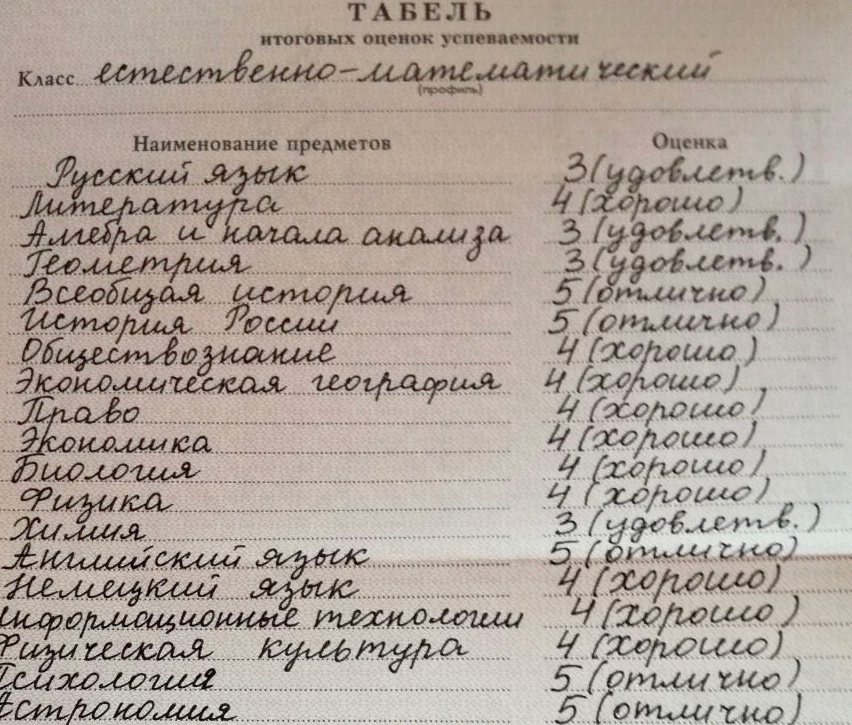 ТАБЕЛЬ
итоговых оценок успеваемости
Класс естественно-математический
(профиль)
Наименование предметов Оценка
Русский язык 3 (удовлетв.)
Литература 4 (хорошо)
Алгебра и начала анализа 3 (удовлетв.)
Геометрия 3 (удовлетв.)
Всеобщая история 5 (отлично)
История России 5 (отлично)
Обществознание 4 (хорошо)
Экономическая география 4 (хорошо)
Право 4 (хорошо)
Экономика 4 (хорошо)
Биология 4 (хорошо)
Физика 4 (хорошо)
Химия 3 (удовлетв.)
Английский язык 5 (отлично)
Немецкий язык 4 (хорошо)
Информационные технологии 4 (хорошо)
Физическая культура 4 (хорошо)
Психология 5 (отлично)
Астрономия 5 (отлично)